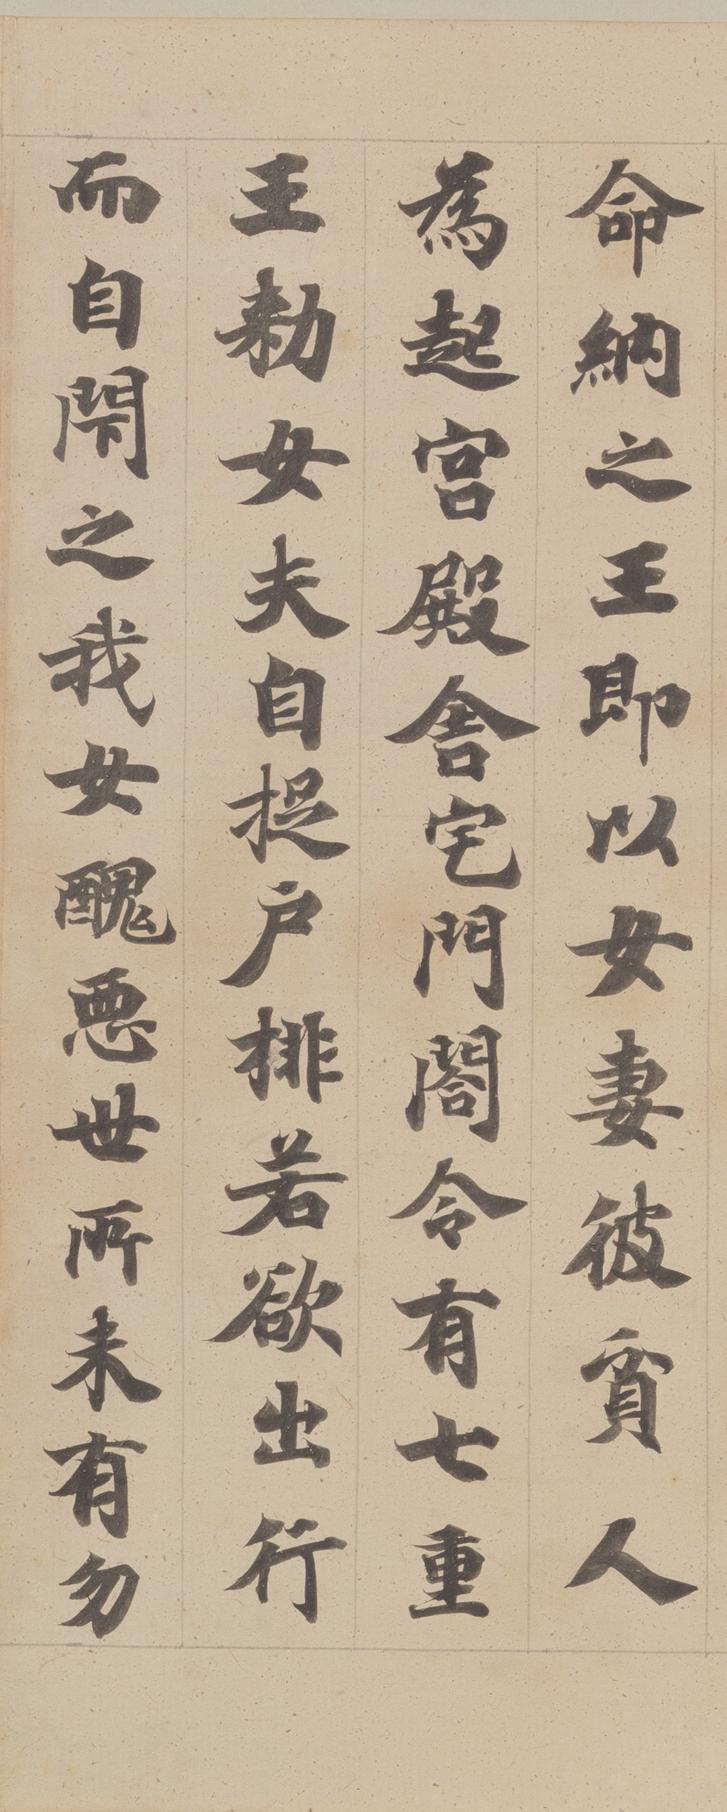 命納之王即以女妻彼貧人
為起宮殿舎宅門閤令有七重
王勑女夫自捉戶排若欲出行
而自閇之我女醜悪世所未有勿